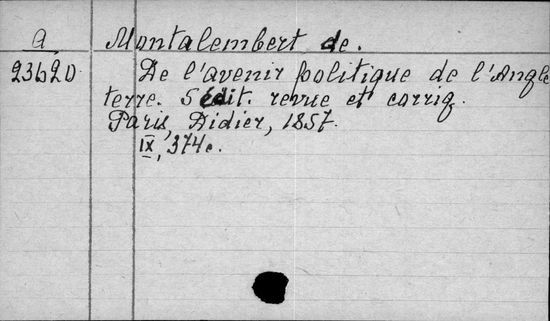 a Montalembert de.
23620 De l'avenir politique de l'Angle
terre. 5 édit. revue et corrig.
Paris, Didier, 1857.
IX, 374c.